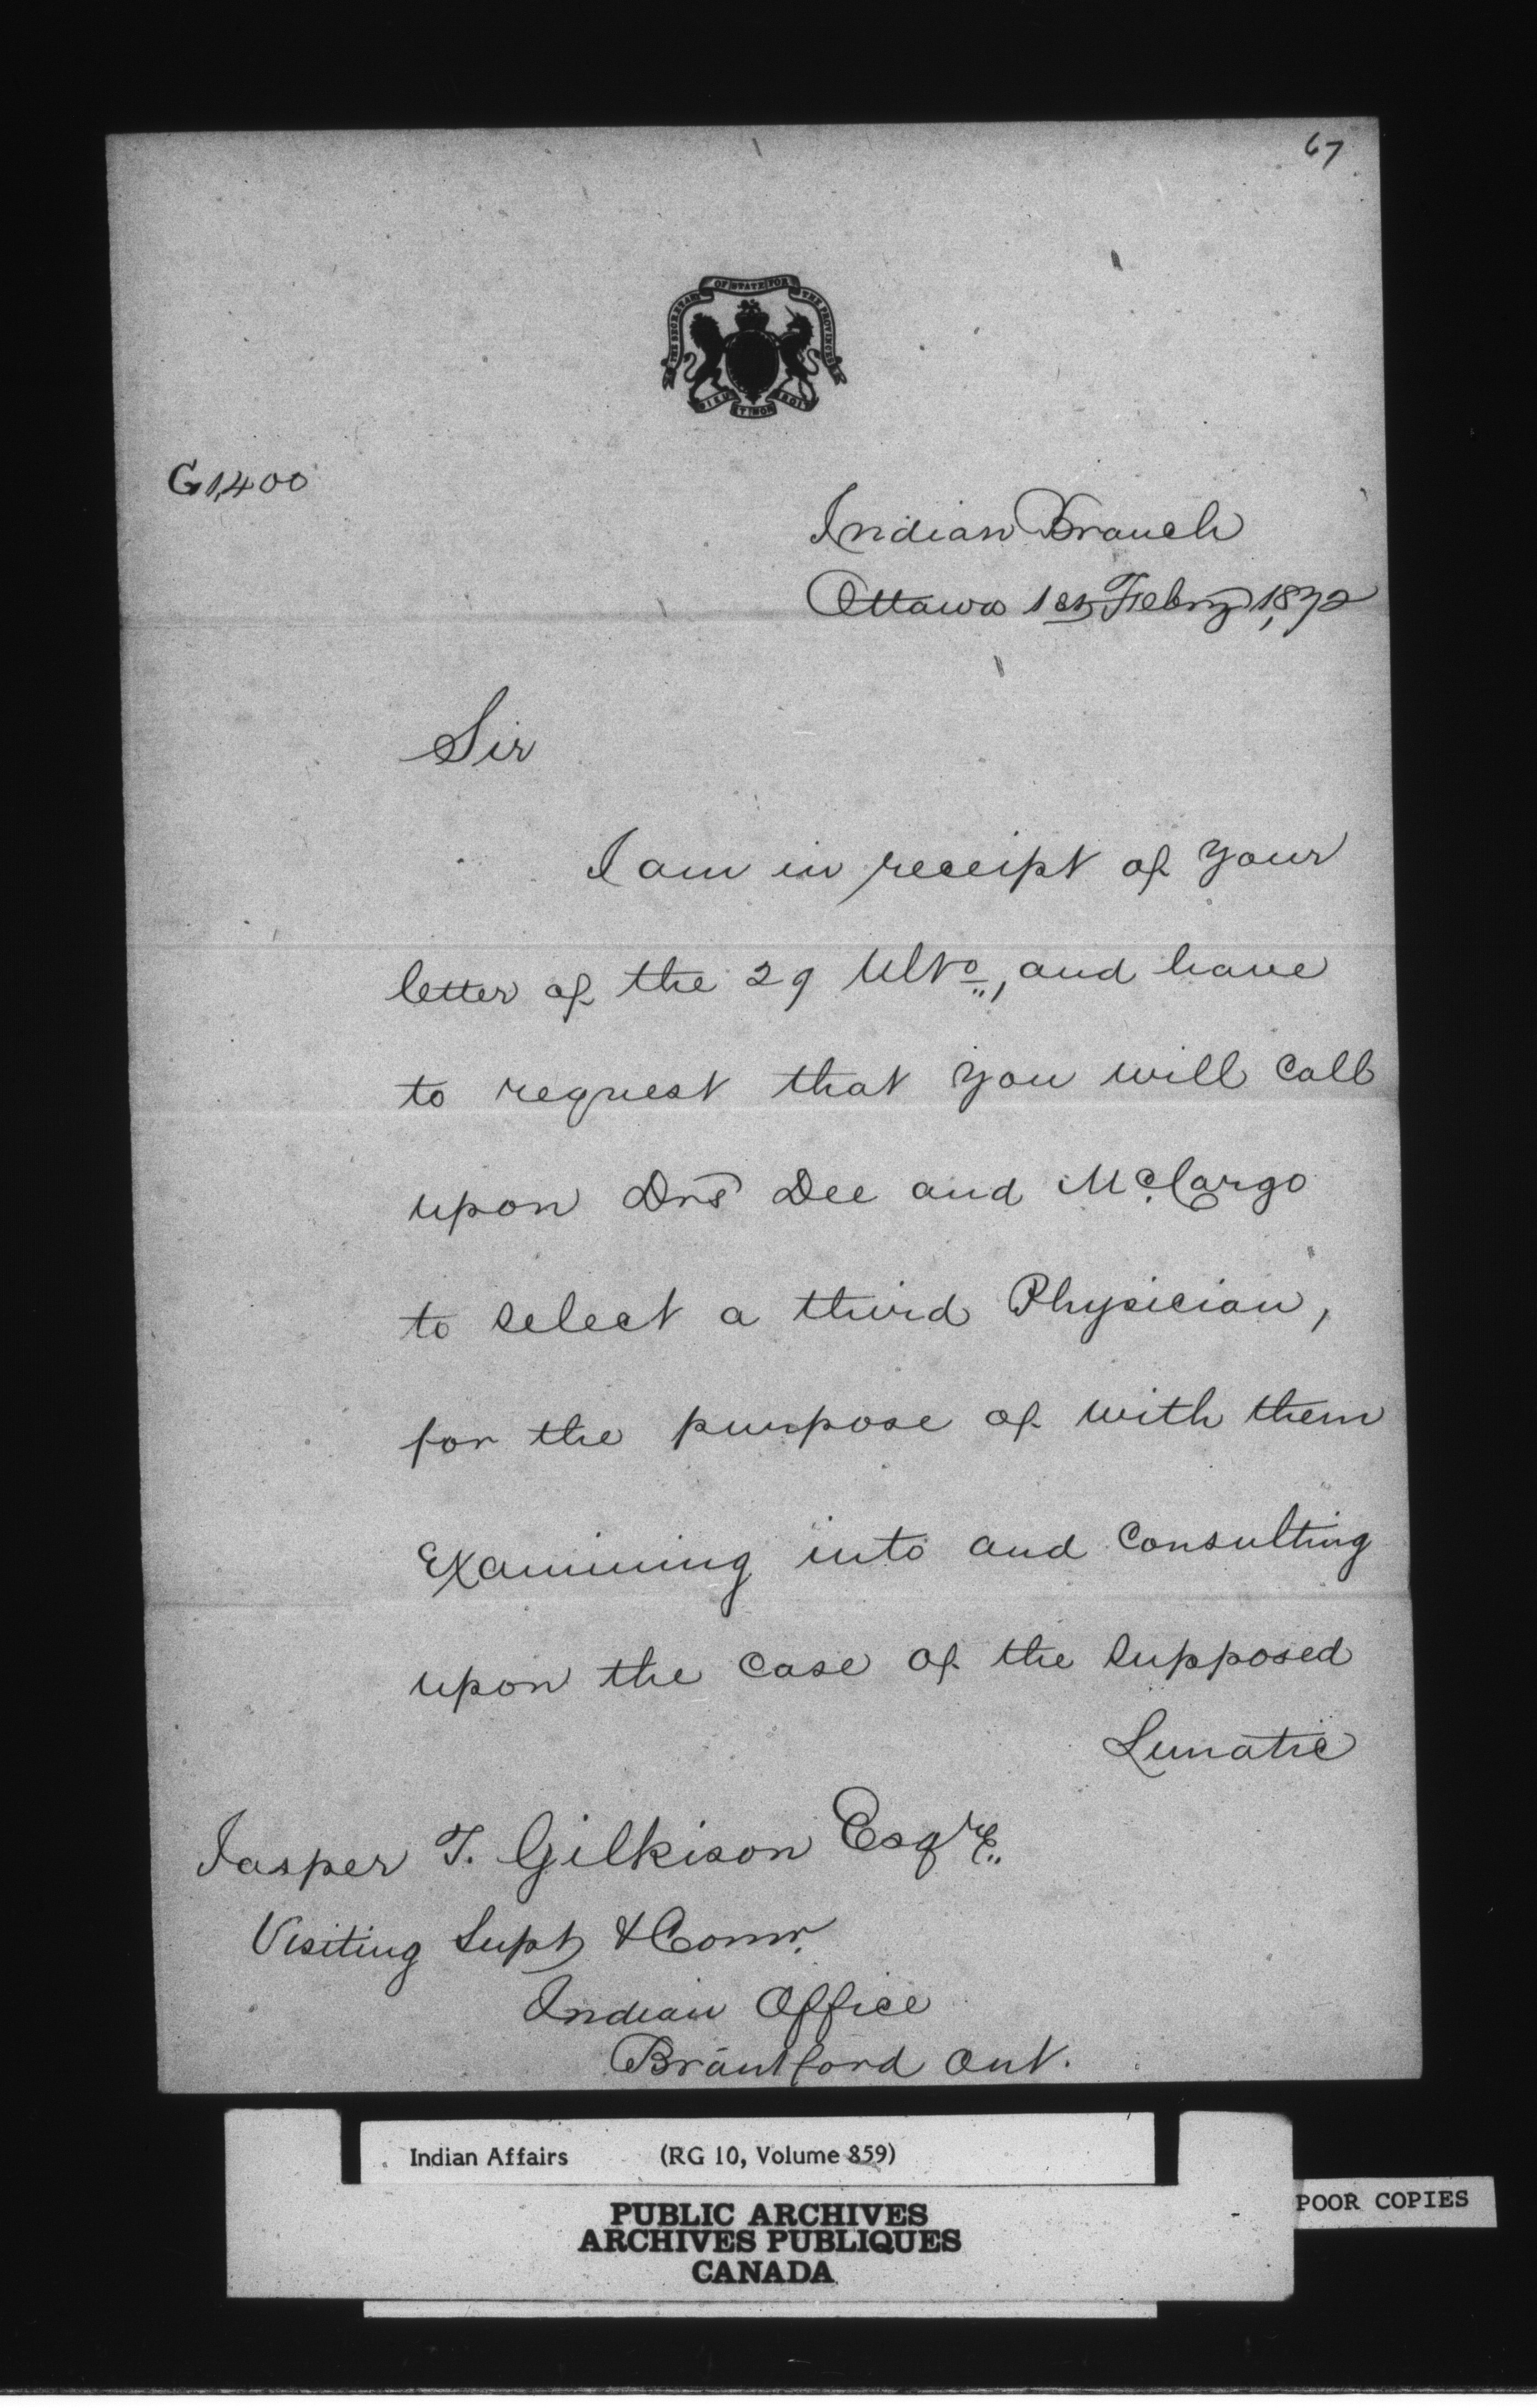 67
THE SECRETARY OF STATE FOR THE PROVINCES
DIEU ET MON DROIT
G1,400
Indian Branch
Ottawa 1st Febry 1,872
Sir
I am in receipt of your
letter of the 29 Ulto, and have
to request that you will Call
upon Drs Dee and McCargo
to select a third Physician,
for the purpose of with them
Examining into and Consulting
upon the Case of the supposed
Lunatic
Jasper T. Gilkison Esqre.
Visiting Supt & Comr.
Indian Office
Brantford Ont.
Indian Affairs (RG 10, Volume 859)
PUBLIC ARCHIVES
ARCHIVES PUBLIQUES
CANADA
POOR COPIES